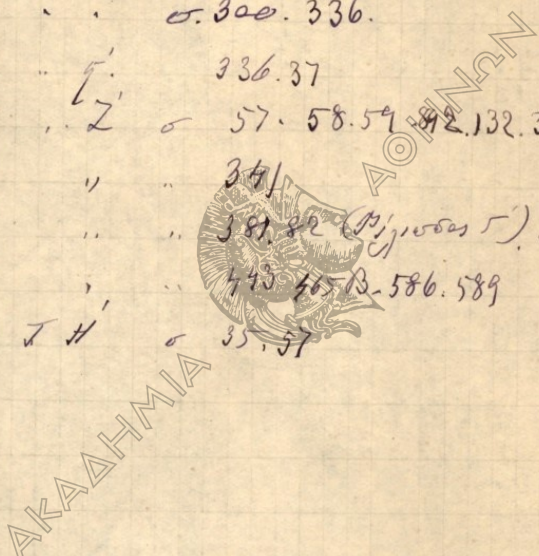 " " σ. 300. 336.
" ϛ'. 336.37
" Ζ' σ 57. 58. 59 132.
" " 341
" " 381.82
" " 443 465Β-586.589
Τ Η' σ 35.57
ΑΚΑΔΗΜΙΑ ΑΘΗΝΩΝ